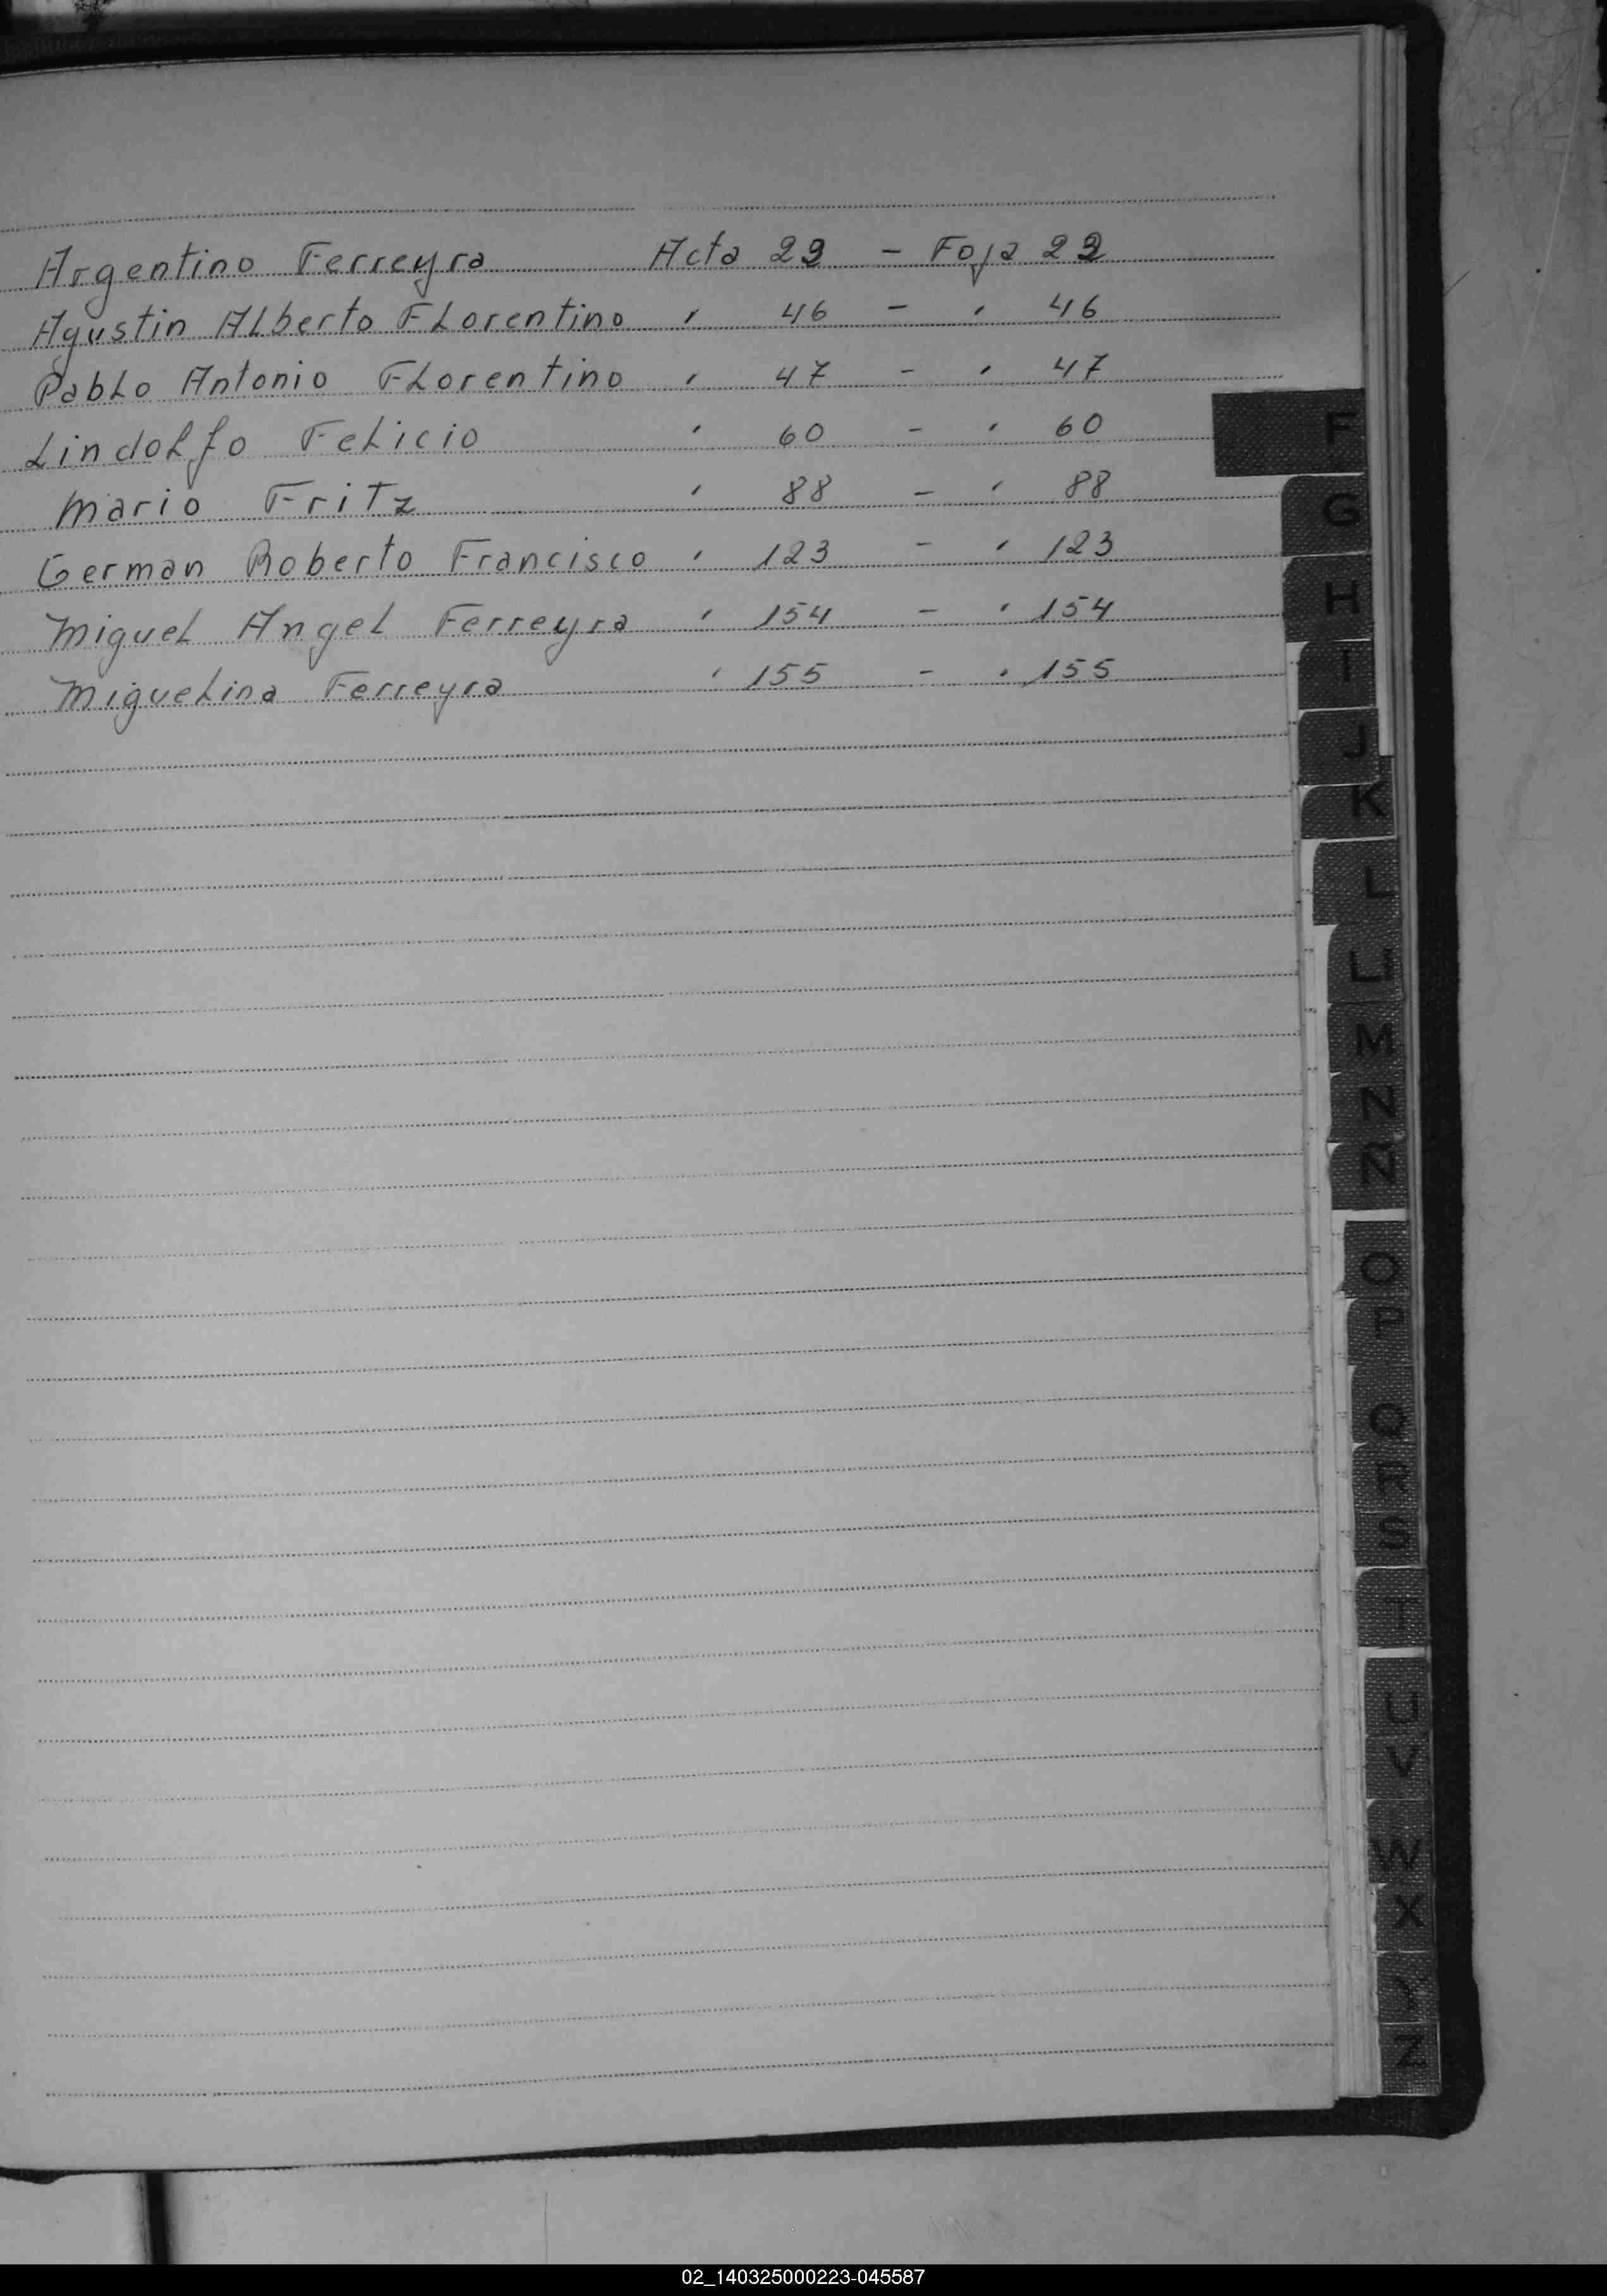 Argentino Ferreyra Acta 23 - Foja 23
Agustin Alberto Florentino " 46 - " 46
Pablo Antonio Florentino " 47 - " 47
Lindolfo Felicio " 60 - " 60
Mario Fritz " 88 - " 88
German Roberto Francisco " 123 - " 123
Miguel Angel Ferreyra " 154 - " 154
Miguelina Ferreyra " 155 - " 155
F
G
H
I
J
K
L
LL
M
N
Ñ
O
P
Q
R
S
T
U
V
W
X
Y
Z
02_140325000223-045587